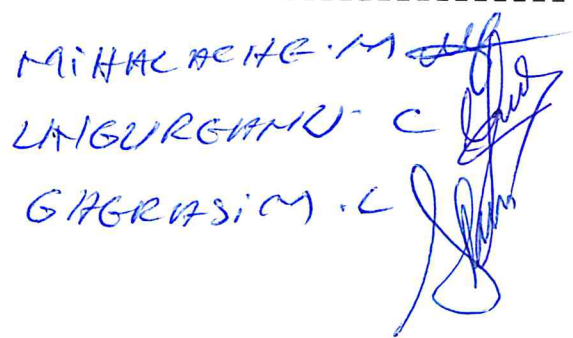 MIHALACHE.M
UNGUREANU C
GAGRASIM.C